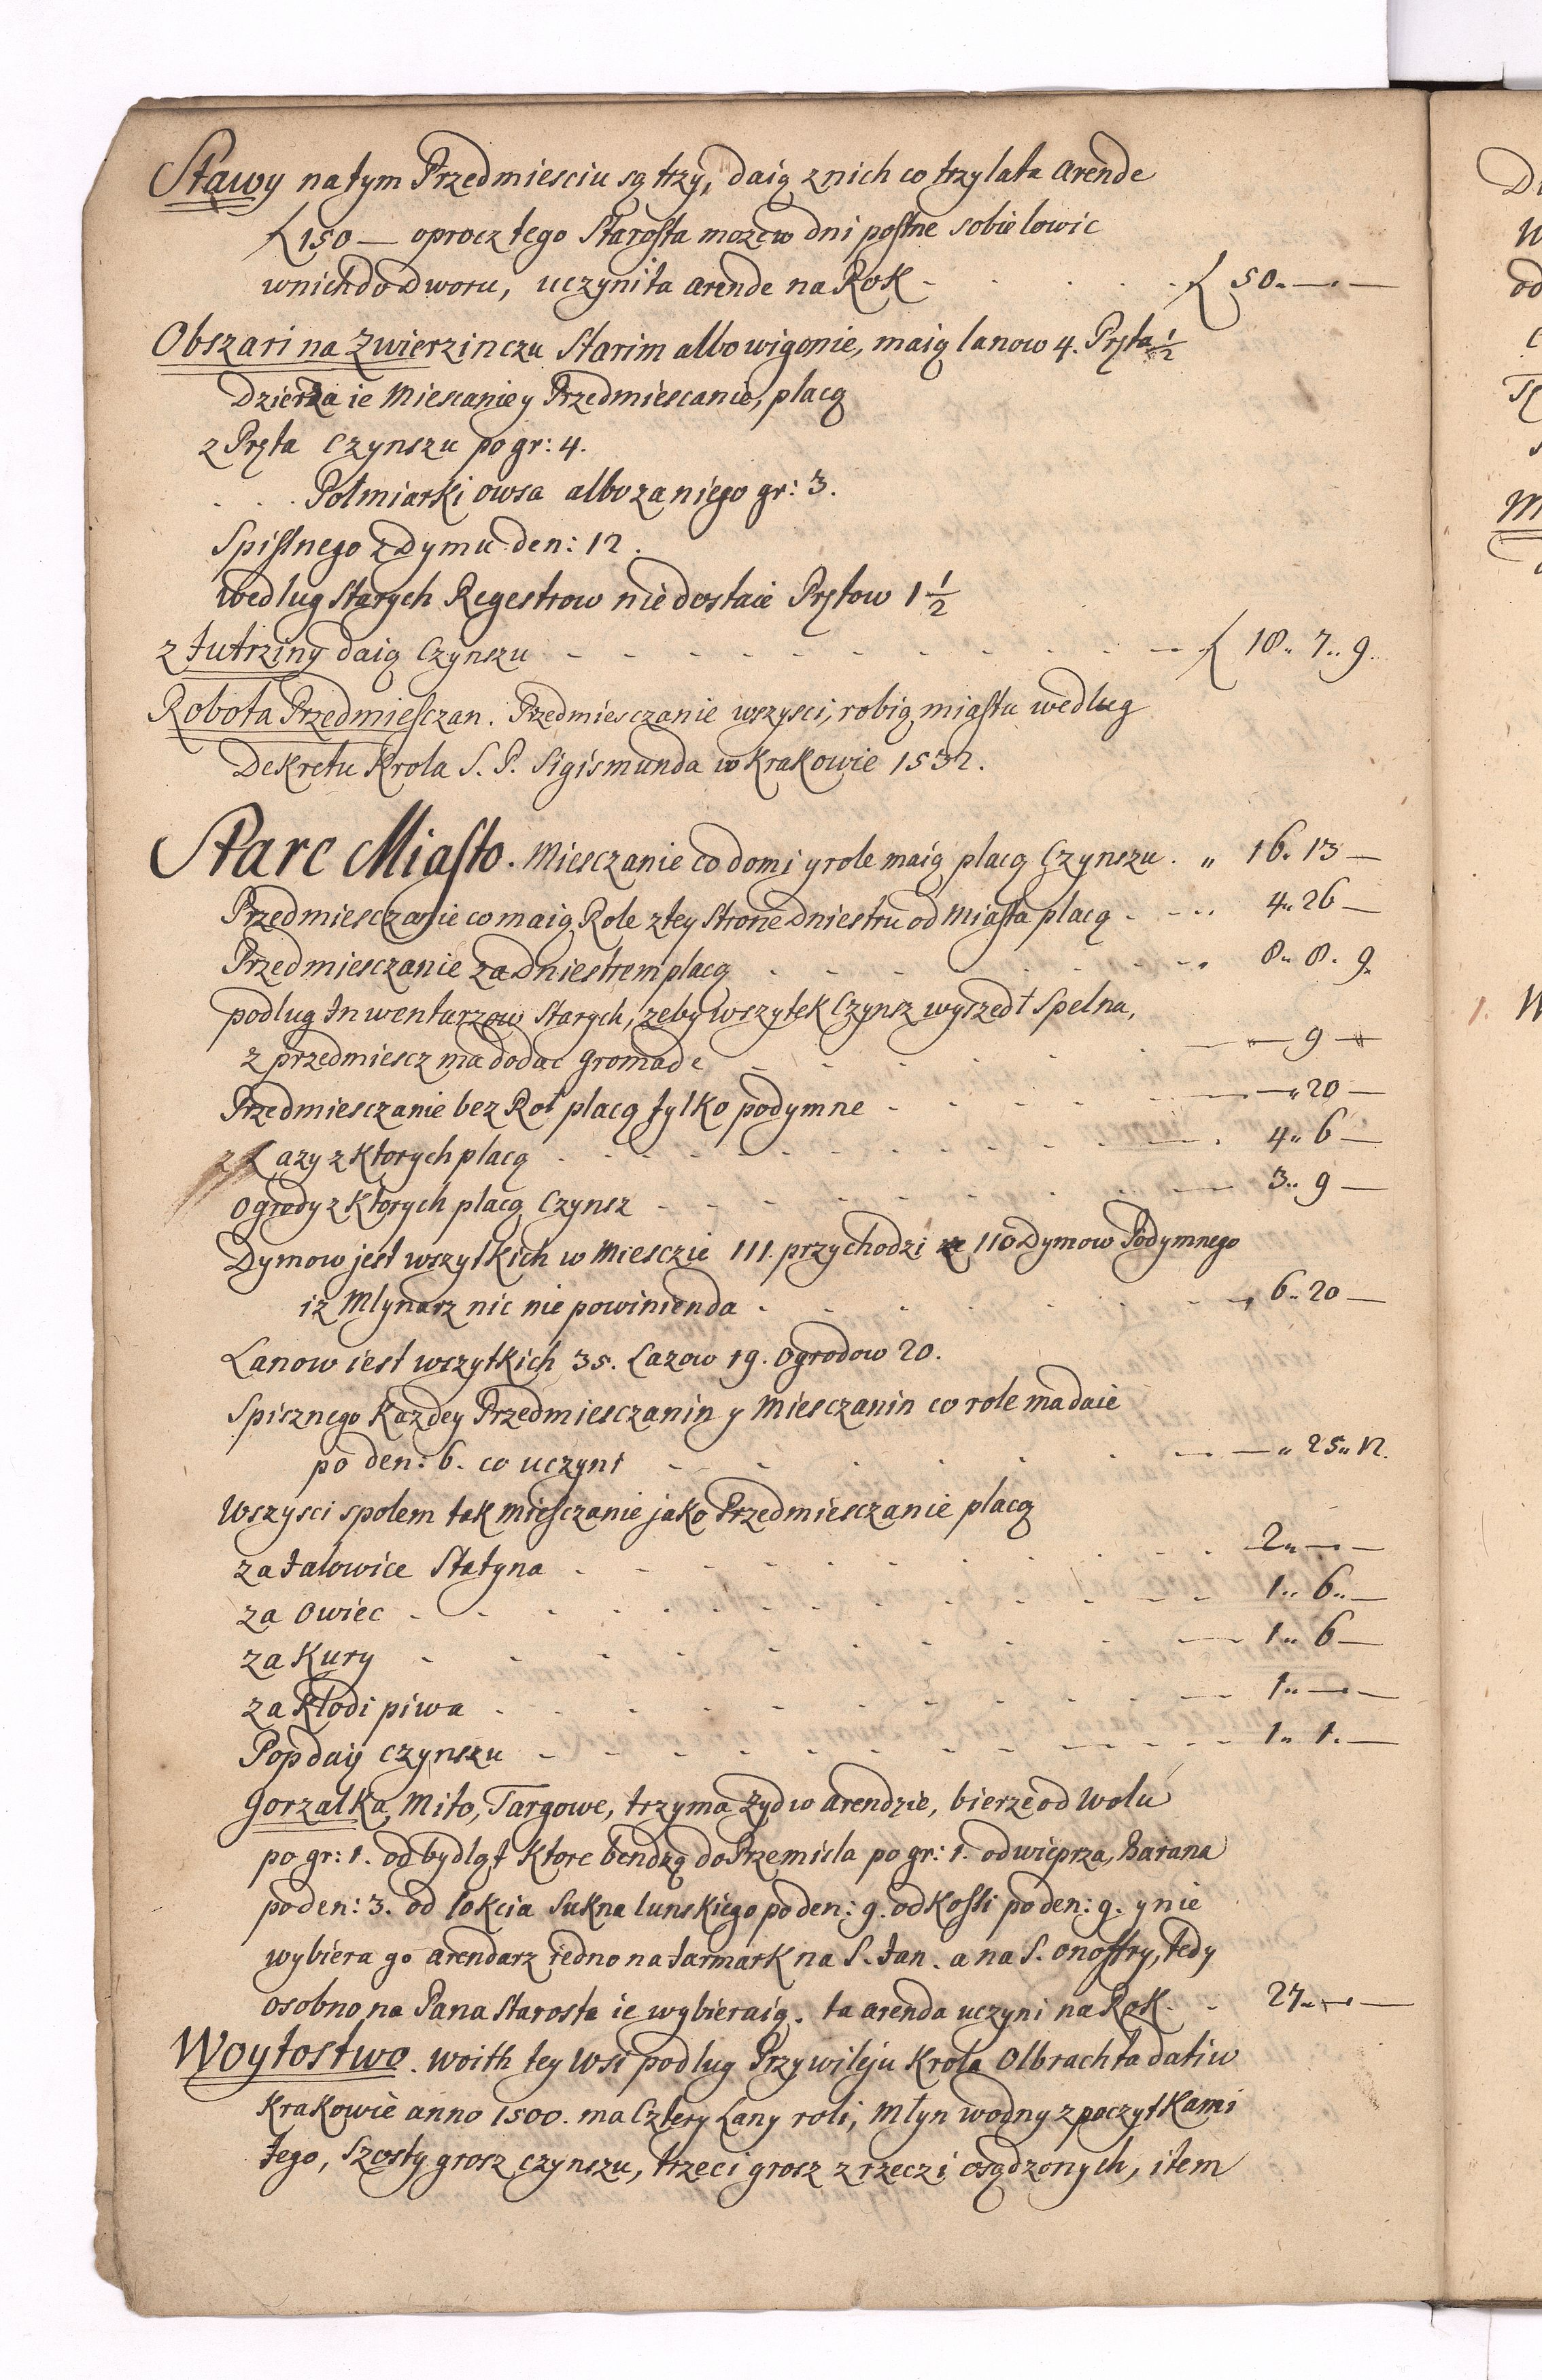 Stawy na tym Przedmiesciu są trzy, daią z nich co trzy lata arende
ƒ 150 — oprocz tego Starosta moze w dni postne sobie lowic
w nich do dworu, uczyniła arende na Rok - . . . . . ƒ 50„ —„ —
Obszari na Zwierzinczu Starim albo wigonie, maią lanow 4. Pręta 1/2
Dzierza ie Miescanie y Przedmiescanie, placą
z Pręta Czynszu po gr: 4.
. . . Połmiarki owsa albo za niego gr: 3.
Spistnego z Dymu den: 12.
Wedlug Starych Regestrow nie dostaie Prętow 1 1/2
z Jutrziny daią Czynszu - - - - - - - - - - ƒ 18„ 7„ 9.
Robota Przedmiesczan. Przedmiesczanie wszysci, robią miastu wedlug
Dekretu Krola S. P. Sigismunda w Krakowie 1532.
Stare Miasto. Miesczanie co domi y role maią placą Czynszu . „ 16„ 13 —
Przedmiesczanie co maią Role z tey Strone Dniestru od Miasta placą - - - „ 4„ 26 —
Przedmiesczanie za Dniestrem placą - - - - - - „ 8„ 8. 9„
podlug Inwentarzow Starych, zeby wszytek Czynsz wyszedł Spelna,
z przedmiescz ma dodac Gromade - - - - — „ — 9 —„
Przedmiesczanie bez Rol placą tylko podymne - - - - — —„ 20 —
z Lazy z ktorych placą - - - - - - - - — . 4„ 6 —
Ogrody z ktorych placą Czynsz - - - - - - — 3„ 9 —
Dymow jest wszytkich w Miesczie 111. przychodzi ze 110 Dymow Podymnego
iz Mlynarz nic nie powinien da - - - - - - „ 6„ 20 —
Lanow iest wszytkich 35. Lazow 19. Ogrodow 20.
Spisznego Kazdey Przedmiesczanin y Miesczanin co role ma daie
po den: 6. co uczyni - - - - - - — —„ 25„ 12.
Wszysci spolem tak Miesczanie jako Przedmiesczanie placą
za Jalowice Statyna - - - - - - - - 2„ —„ —
za Owiec - - - - - - - - - - 1„ 6„ —
za Kury - - - - - - - - — 1„ 6 —
za Kłodi piwa - - - - - - - - — 1„ —„ —
Pop daij czynszu - - - - - - - - - - 1„ 1. —
Gorzałka, Mito, Targowe, trzyma Zyd w arendzie, bierze od Wolu
po gr: 1. od bydląt ktore bendzą do Przemisla po gr: 1. od wieprza, Barana
po den: 3. od lokcia Sukna lunskiego po den: 9. od Kossi po den: 9. y nie
wybiera go arendarz iedno na Jarmark na S. Jan. a na S. Onoffry, tedy
osobno na Pana Starosta ie wybieraią. ta arenda uczyni na Rok - - 27„ —„ —
Woytostwo. Woith tey Wsi podlug Przywileju Krola Olbrachta dati w
Krakowie anno 1500. ma Cztery Lany roli, Młyn wodny z poczytkami
tego, Szosty grosz czynszu, trzeci grosz z rzeczi osądzonych, item